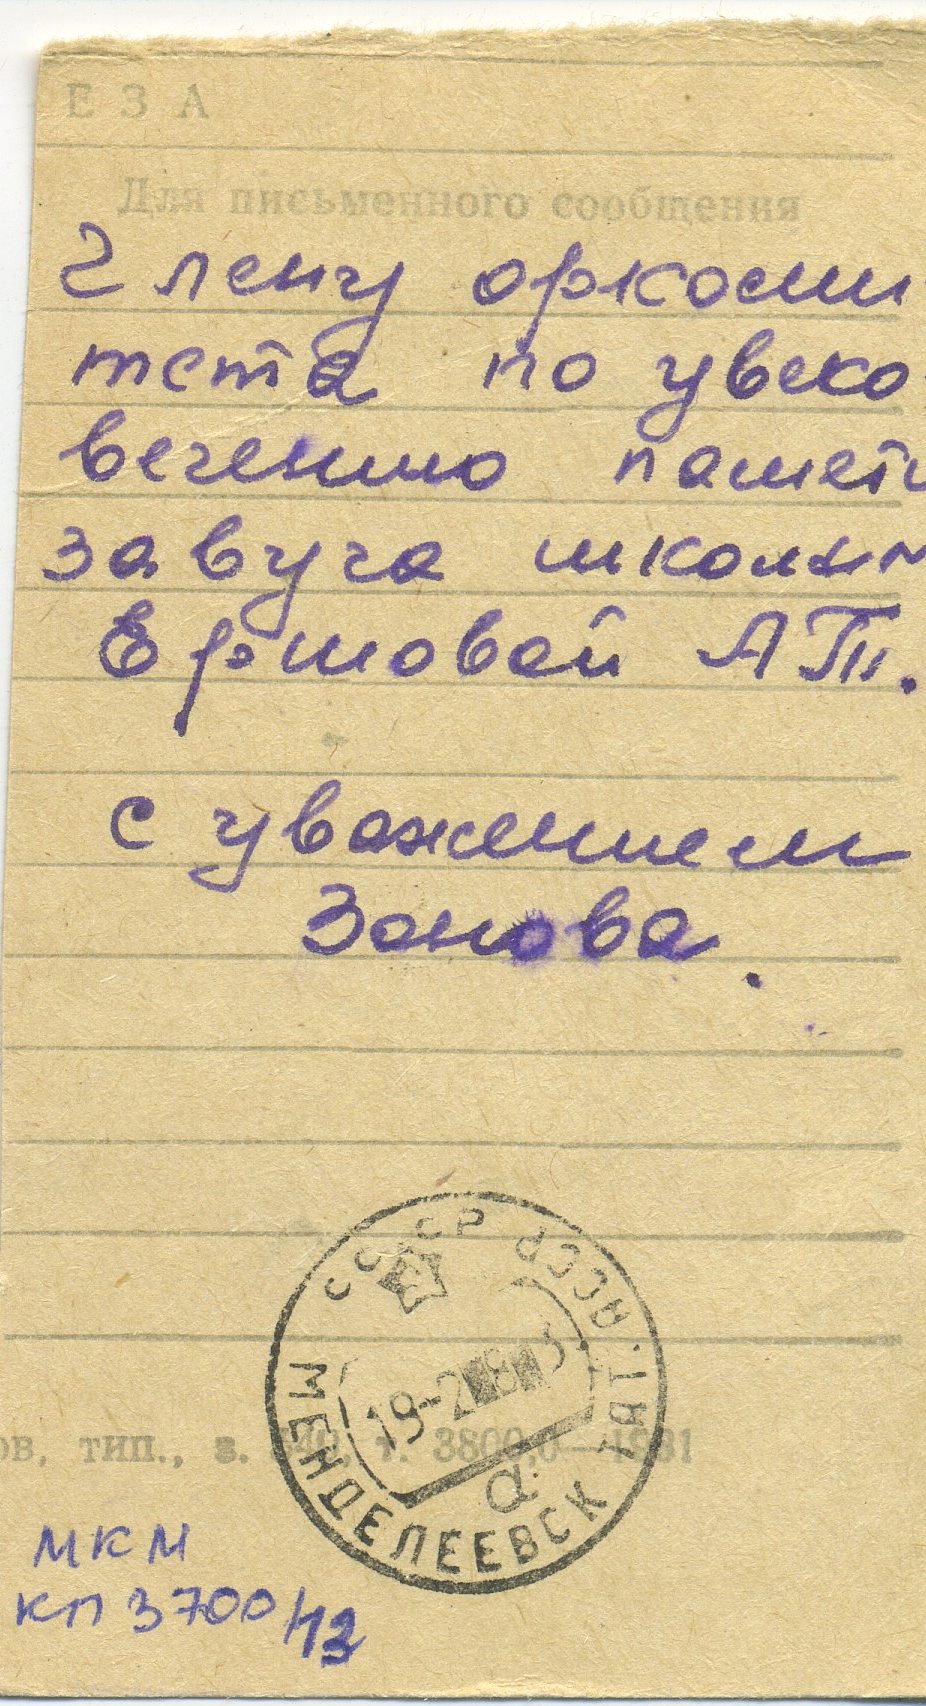 ЕЗА
Для письменного сообщения
Члену оркоми-
тета по увеко-
вечению памети
завуча школы N
Ершовой АТ.
с уважением
Зонова.
СССР ТАТ. АССР
19-2 83
а
МЕНДЕЛЕЕВСК
ов, тип., з. 540, т. 3800,0—1981
МКМ
КП 3700/13